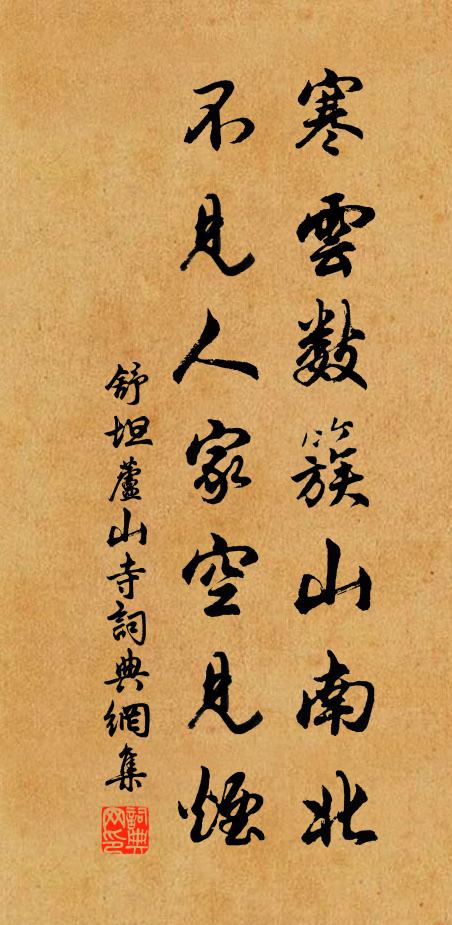 寒雲數簇山南北
不見人家空見煙
舒坦蘆山寺詞典網集
詞典網印